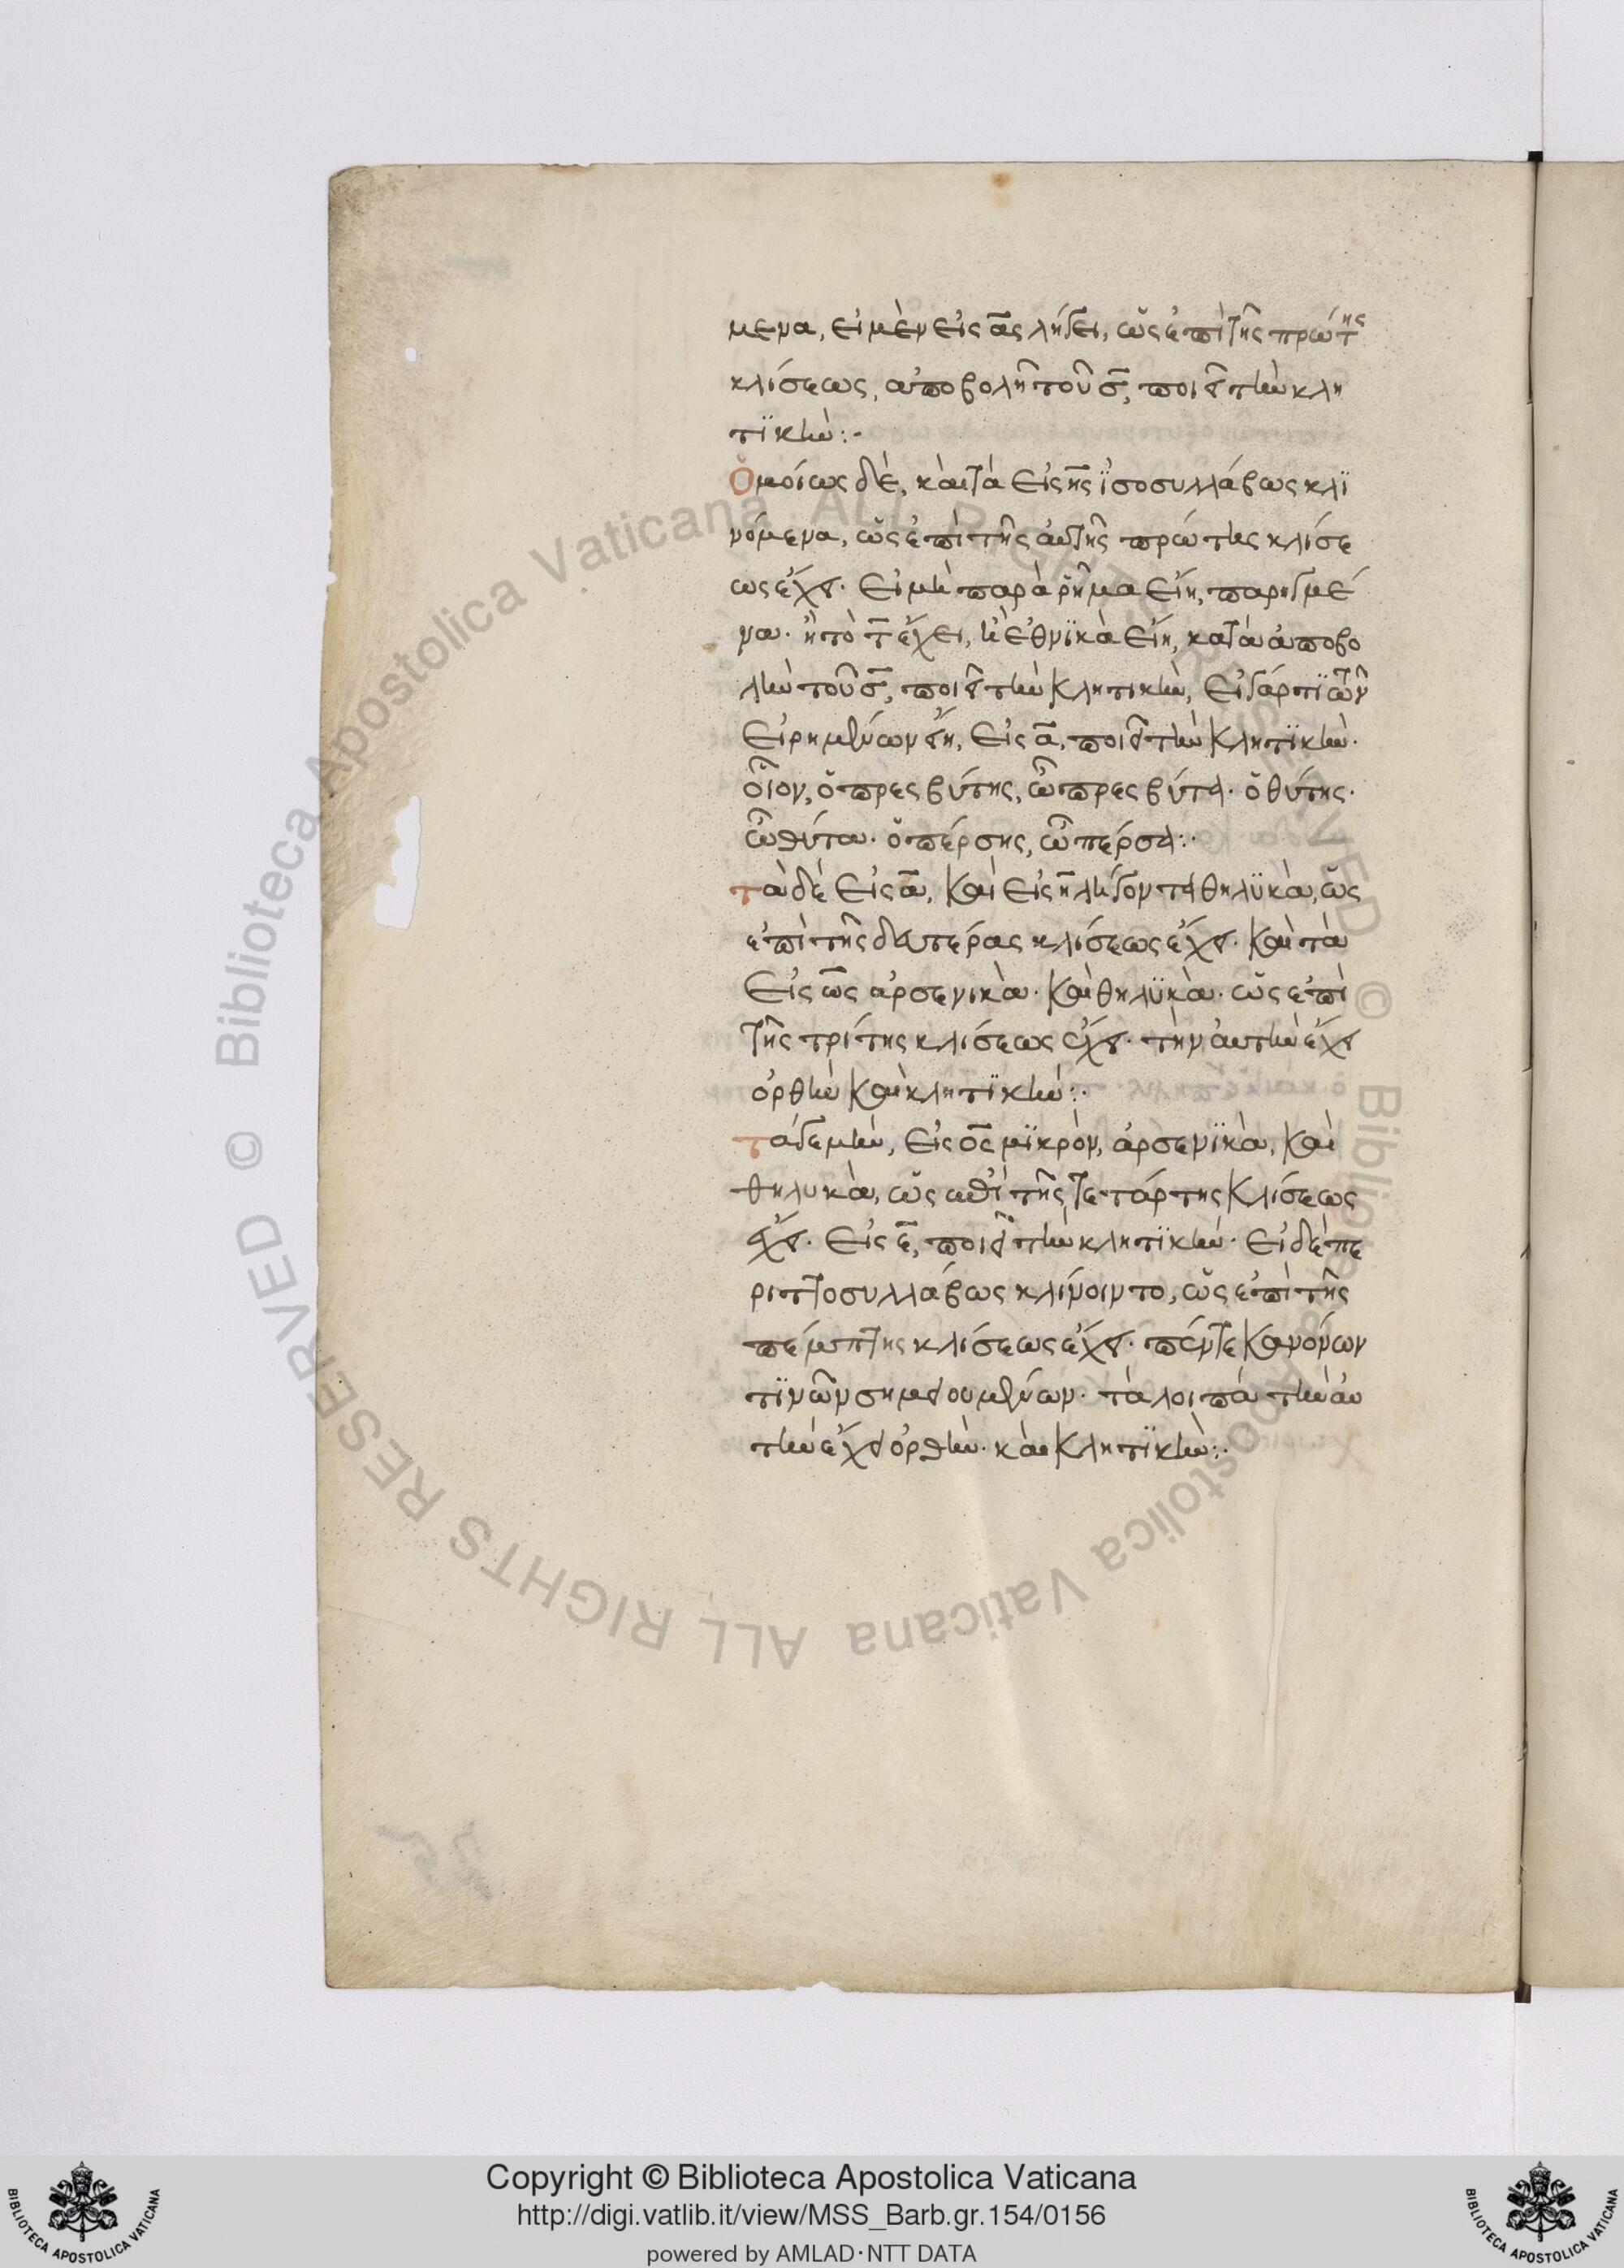 μενα, εἰ μὲν εἰς ας λήγει, ὡς ἐπὶ τῆς πρώτης
κλίσεως, ἀποβολῆ τοῦ σ, ποιεῖ τὴν κλη
τϊκήν:-
Ὁμοίως δὲ, καὶ τὰ εἰς ης ἰσοσυλλάβως κλϊ
νόμενα, ὡς ἐπὶ τῆς αὐτῆς πρώτης κλίσε
ως ἔχει. εἰ μὴ παρὰ ῥῆμα εἴη, παρηγμέ
να. ἢ τὸ τ ἔχει, ἢ ἐθνϊκὰ εἴη, κατὰ ἀποβο
λὴν τοῦ σ, ποιεῖ τὴν κλητικὴν, εἰ γάρ τϊ τῶν
εἰρημένων εἴη, εἰς α, ποιεῖ τὴν κλητϊκήν.
οἷον, ὁ πρεσβύτης, ὦ πρεσβύτα. ὁ θύτης.
ὦ θύτα. ὁ πέρσης, ὦ πέρσα:.
τὰ δὲ εἰς α, καὶ εἰς η λήγοντα θηλϋκὰ, ὡς
ἐπὶ τῆς δευτέρας κλίσεως ἔχει. καὶ τὰ
εἰς ως ἀρσενικὰ. καὶ θηλϋκὰ. ὡς ἐπὶ
τῆς τρίτης κλίσεως ἔχει. τὴν αὐτὴν ἔχει
ὀρθὴν καὶ κλητϊκήν:.
τὰ γε μὴν, εἰς ος μϊκρὸν, ἀρσενϊκὰ, καὶ
θηλυκὰ, ὡς ἐπὶ τῆς τετάρτης κλίσεως
ἔχει. εἰς ε, ποιεῖ τὴν κλητϊκήν. εἰ δὲ πε
ριττοσυλλάβως κλίνοιντο, ὡς ἐπὶ τῆς
πέμπτης κλίσεως ἔχει. πέντε κανόνων
τϊνῶν σημειουμένων. τὰ λοιπὰ τὴν αὐ
τὴν ἔχει ὀρθὴν. καὶ κλητϊκήν:.
© Biblioteca Apostolica Vaticana ALL RIGHTS RESERVED
© Biblioteca Apostolica Vaticana ALL RIGHTS RESERVED
Copyright © Biblioteca Apostolica Vaticana
http://digi.vatlib.it/view/MSS_Barb.gr.154/0156
powered by AMLAD·NTT DATA
BIBLIOTECA APOSTOLICA VATICANA
BIBLIOTECA APOSTOLICA VATICANA